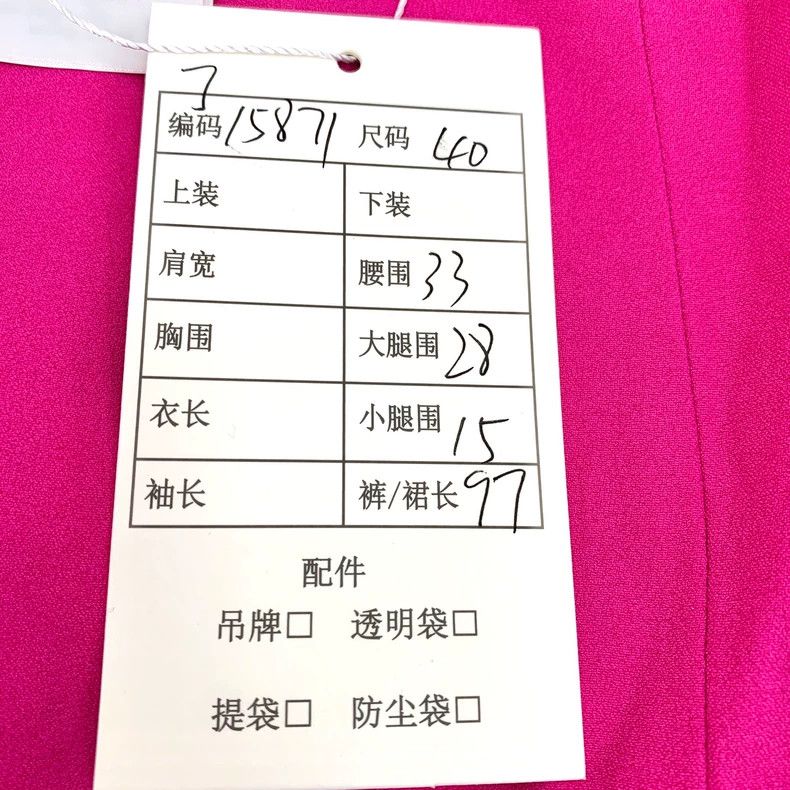 编码 15871 尺码 40
上装 下装
肩宽 腰围 33
胸围 大腿围 28
衣长 小腿围 15
袖长 裤/裙长 97
配件
吊牌□ 透明袋□
提袋□ 防尘袋□